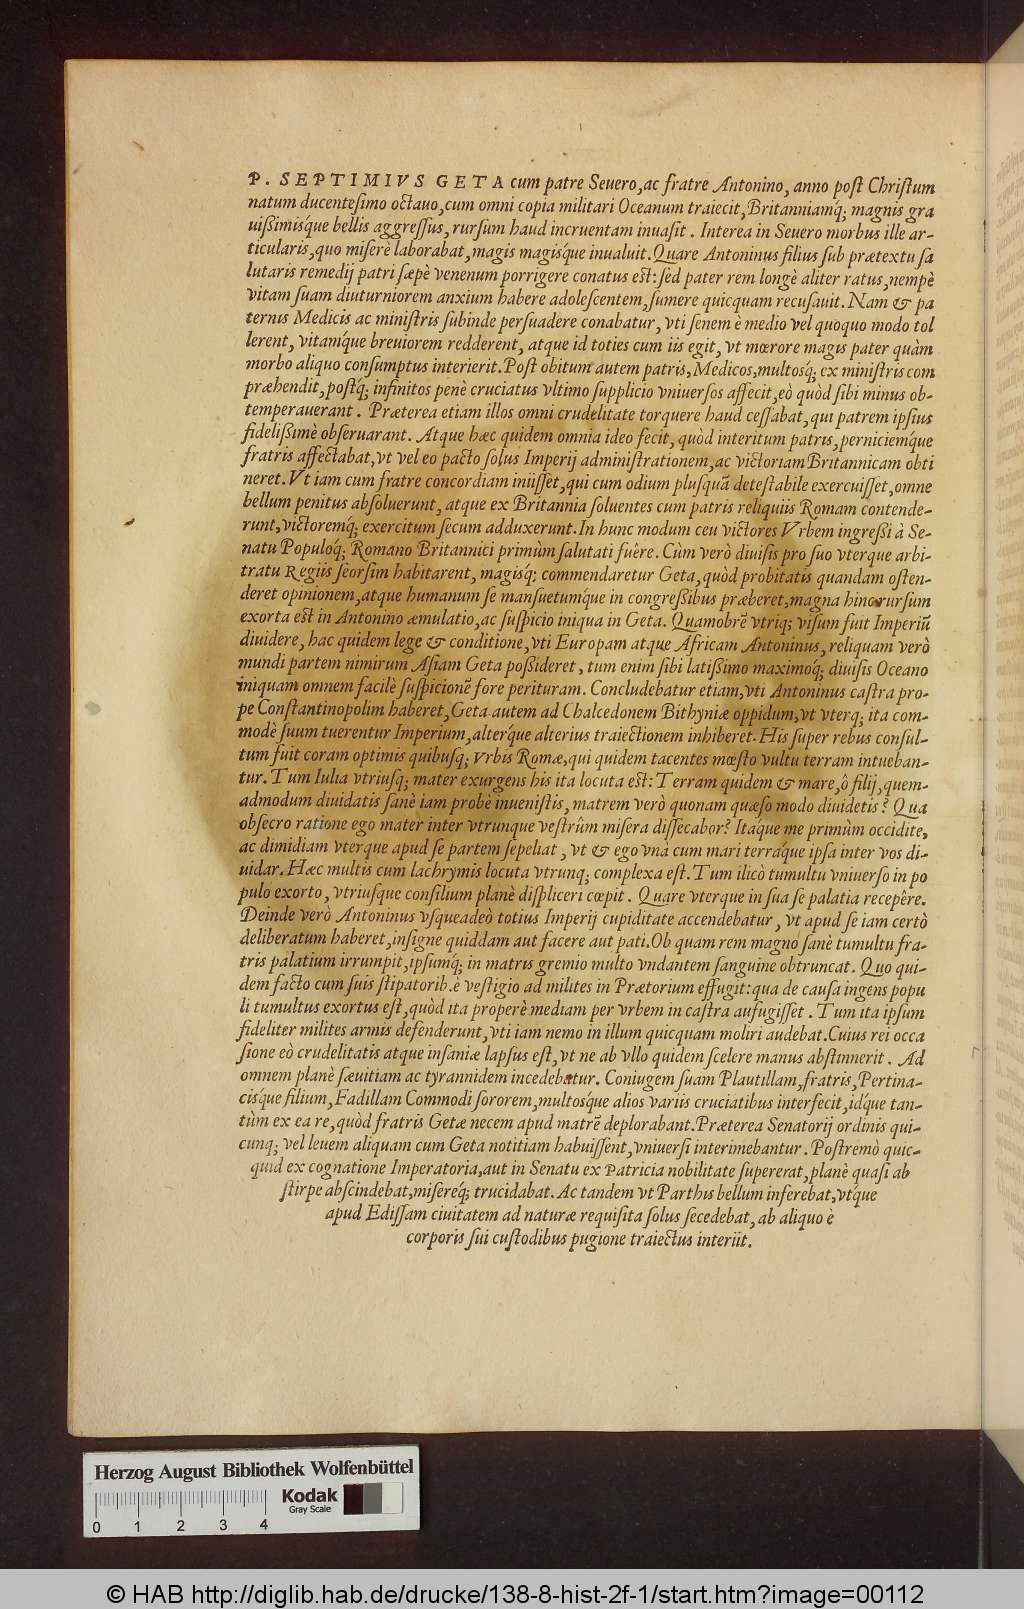 P. SEPTIMIVS GETA cum patre Seuero, ac fratre Antonino, anno post Christum
natum ducentesimo octauo, cum omni copia militari Oceanum traiecit, Britanniamq́; magnis gra
uißimisq́ue bellis aggreſſus, rurſum haud incruentam inuaſit. Interea in Seuero morbus ille ar-
ticularis, quo miſerè laborabat, magis magisq́ue inualuit. Quare Antoninus filius ſub prætextu ſa
lutaris remedij patri ſæpè venenum porrigere conatus eſt: ſed pater rem longè aliter ratus, nempè
vitam ſuam diuturniorem anxium habere adoleſcentem, ſumere quicquam recuſauit. Nam & pa
ternis Medicis ac miniſtris ſubinde perſuadere conabatur, vti ſenem è medio vel quoquo modo tol
lerent, vitamq́ue breuiorem redderent, atque id toties cum iis egit, vt mœrore magis pater quàm
morbo aliquo conſumptus interierit. Poſt obitum autem patris, Medicos, multosq́; ex miniſtris com
præhendit, poſtq́; infinitos penè cruciatus vltimo ſupplicio vniuerſos affecit, eò quòd ſibi minus ob-
temperauerant. Præterea etiam illos omni crudelitate torquere haud ceſſabat, qui patrem ipſius
fidelißimè obſeruarant. Atque hæc quidem omnia ideo fecit, quòd interitum patris, perniciemq́ue
fratris affectabat, vt vel eo pacto ſolus Imperij adminiſtrationem, ac victoriam Britannicam obti
neret. Vt iam cum fratre concordiam iniiſſet, qui cum odium pluſquā deteſtabile exercuiſſet, omne
bellum penitus abſoluerunt, atque ex Britannia ſoluentes cum patris reliquiis Romam contende-
runt, victoremq́; exercitum ſecum adduxerunt. In hunc modum ceu victores Vrbem ingreßi à Se-
natu Populoq́; Romano Britannici primùm ſalutati fuêre. Cùm verò diuiſis pro ſuo vterque arbi-
tratu Regiis ſeorſim habitarent, magisq́; commendaretur Geta, quòd probitatis quandam oſten-
deret opinionem, atque humanum ſe manſuetumq́ue in congreßibus præberet, magna hinc rurſum
exorta eſt in Antonino æmulatio, ac ſuſpicio iniqua in Geta. Quamobrē vtriq; viſum fuit Imperiū
diuidere, hac quidem lege & conditione, vti Europam atque Africam Antoninus, reliquam verò
mundi partem nimirum Aſiam Geta poßideret, tum enim ſibi latißimo maximoq́; diuiſis Oceano
iniquam omnem facilè ſuſpicionē fore perituram. Concludebatur etiam, vti Antoninus caſtra pro-
pe Conſtantinopolim haberet, Geta autem ad Chalcedonem Bithyniæ oppidum, vt vterq; ita com-
modè ſuum tuerentur Imperium, alterq́ue alterius traiectionem inhiberet. His ſuper rebus conſul-
tum fuit coram optimis quibuſq; Vrbis Romæ, qui quidem tacentes mœſto vultu terram intueban-
tur. Tum Iulia vtriuſq; mater exurgens his ita locuta eſt: Terram quidem & mare, ô filij, quem-
admodum diuidatis ſanè iam probè inueniſtis, matrem verò quonam quæſo modo diuidetis? Qua
obſecro ratione ego mater inter vtrunque veſtrûm miſera diſſecabor? Itaq́ue me primùm occidite,
ac dimidiam vterque apud ſe partem ſepeliat, vt & ego vnà cum mari terraq́ue ipſa inter vos di-
uidar. Hæc multis cum lachrymis locuta vtrunq; complexa eſt. Tum ilicò tumultu vniuerſo in po
pulo exorto, vtriuſque conſilium planè diſpliceri cœpit. Quare vterque in ſua ſe palatia recepêre.
Deinde verò Antoninus vſqueadeò totius Imperij cupiditate accendebatur, vt apud ſe iam certò
deliberatum haberet, inſigne quiddam aut facere aut pati. Ob quam rem magno ſanè tumultu fra-
tris palatium irrumpit, ipſumq́; in matris gremio multo vndantem ſanguine obtruncat. Quo qui-
dem facto cum ſuis ſtipatorib. è veſtigio ad milites in Prætorium effugit: qua de cauſa ingens popu
li tumultus exortus eſt, quòd ita properè mediam per vrbem in caſtra aufugiſſet. Tum ita ipſum
fideliter milites armis defenderunt, vti iam nemo in illum quicquam moliri audebat. Cuius rei occa
ſione eò crudelitatis atque inſaniæ lapſus eſt, vt ne ab vllo quidem ſcelere manus abſtinnerit. Ad
omnem planè ſæuitiam ac tyrannidem incedebatur. Coniugem ſuam Plautillam, fratris, Pertina-
cisq́ue filium, Fadillam Commodi ſororem, multosq́ue alios variis cruciatibus interfecit, idq́ue tan-
tùm ex ea re, quòd fratris Getæ necem apud matrē deplorabant. Præterea Senatorij ordinis qui-
cunq; vel leuem aliquam cum Geta notitiam habuiſſent, vniuerſi interimebantur. Poſtremò quic-
quid ex cognatione Imperatoria, aut in Senatu ex Patricia nobilitate ſupererat, planè quaſi ab
ſtirpe abſcindebat, miſereq́; trucidabat. Ac tandem vt Parthis bellum inferebat, vtq́ue
apud Ediſſam ciuitatem ad naturæ requiſita ſolus ſecedebat, ab aliquo è
corporis ſui cuſtodibus pugione traiectus interiit.
Herzog August Bibliothek Wolfenbüttel
Kodak
Gray Scale
0 1 2 3 4
© HAB http://diglib.hab.de/drucke/138-8-hist-2f-1/start.htm?image=00112